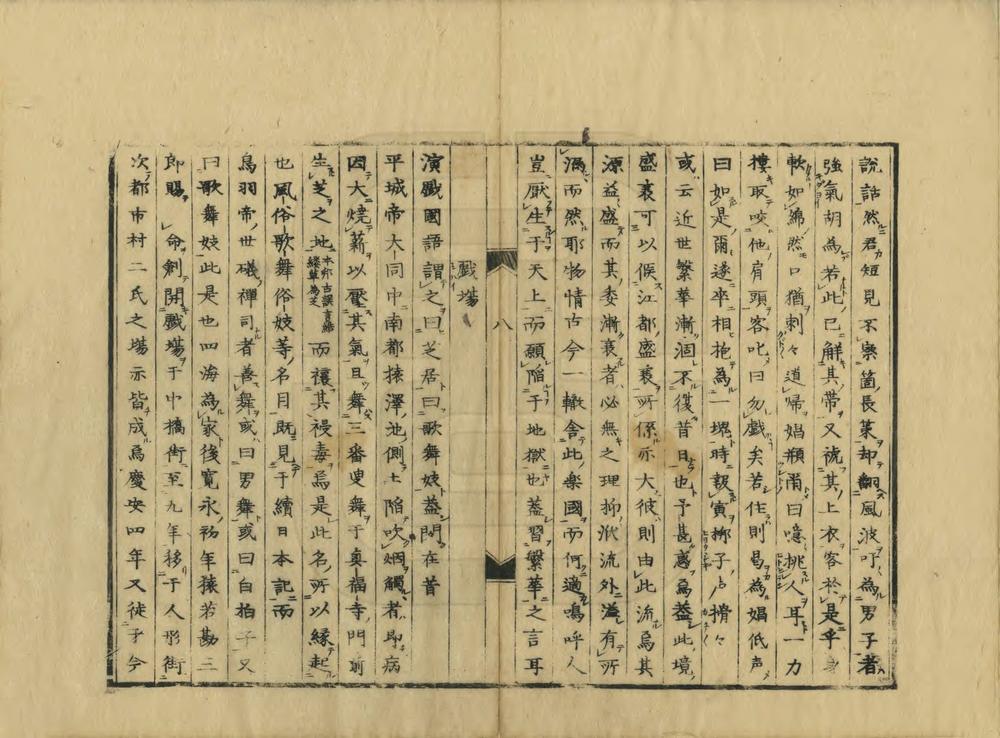 説話然君短見不禦箇長策却翻風波叮為男子者
強氣胡為若此已解其帶又褫其上衣客於是乎身
軟如綿然口猶刺々道帰娼瀬甫曰噫挑人耳一力
摟取咬他肩頭客叱曰勿戯矣若住則曷為娼低声
曰如是爾遂卒相抱為一塊時報寅柳子占搰々
或云近世繁華漸涸不復昔日也予甚惑焉蓋此境
盛衰可以候江都盛衰所係亦大彼則由此流焉其
源益盛而其委漸衰者必無之理抑派流外溢有所
洄而然耶物情古今一轍舎此楽國而何適嗚呼人
豈厭生于天上而願陥于地獄也蓋習繁華之言耳
戯場
演戯國語謂之曰芝居曰歌舞妓蓋聞在昔
平城帝大同中南都猿澤池側土陥吹烟觸者即病
因大焼薪以壓其氣且舞三番叟舞于眞福寺門前
生芝之地
本邦古誤言結
縷草為芝
而禳其祲毒焉是此名所以縁起
也風俗歌舞俗妓等名目既見于續日本記而
鳥羽帝世磯禪司者善舞或曰男舞或曰白拍子又
曰歌舞妓此是也四海為家後寛永初年猿若勘三
郎賜命創開戯場于中橋街至九年移于人形街
次都市村二氏之場亦皆成焉慶安四年又徙于今
八